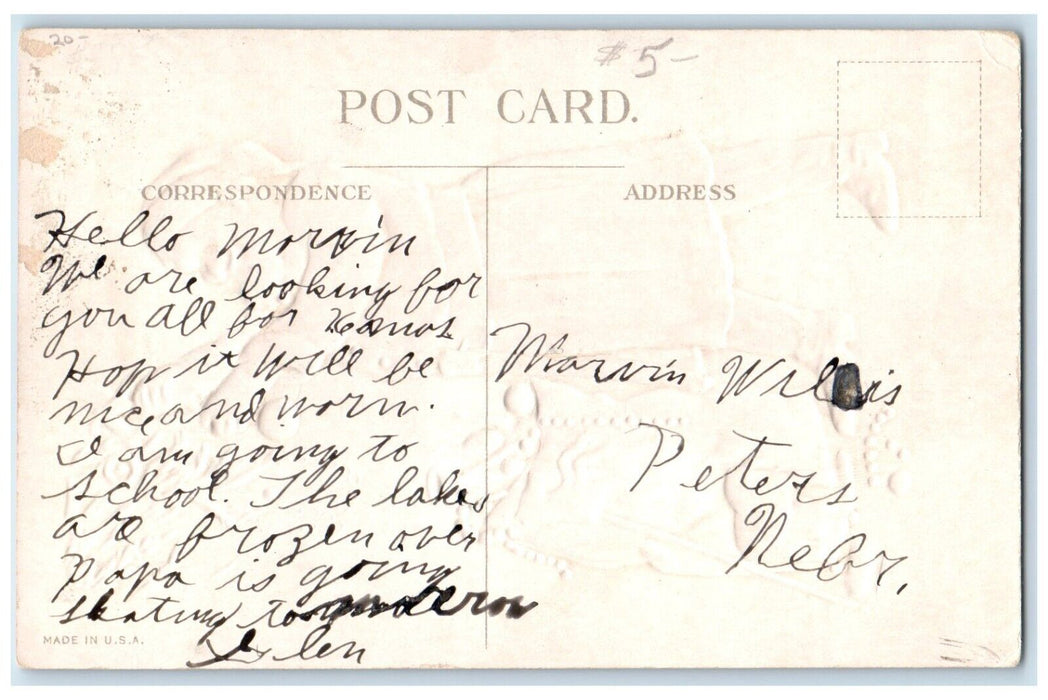 20-
$5-
POST CARD.
CORRESPONDENCE
ADDRESS
Hello Marvin
We are looking for
you all for Xamas
Hop it will be
nice and worm.
I am going to
school. The lakes
are frozen over
Papa is going
skating
Marvin Willis
Peters
Nebr.
MADE IN U.S.A.